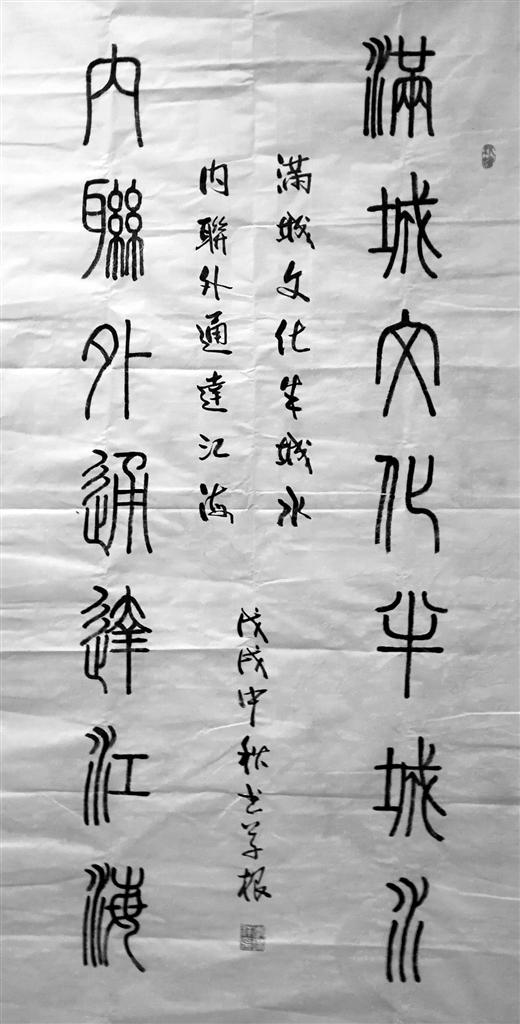 滿城文化半城水
滿城文化半城水
內聯外通達江海
戊戌中秋書學根
內聯外通達江海